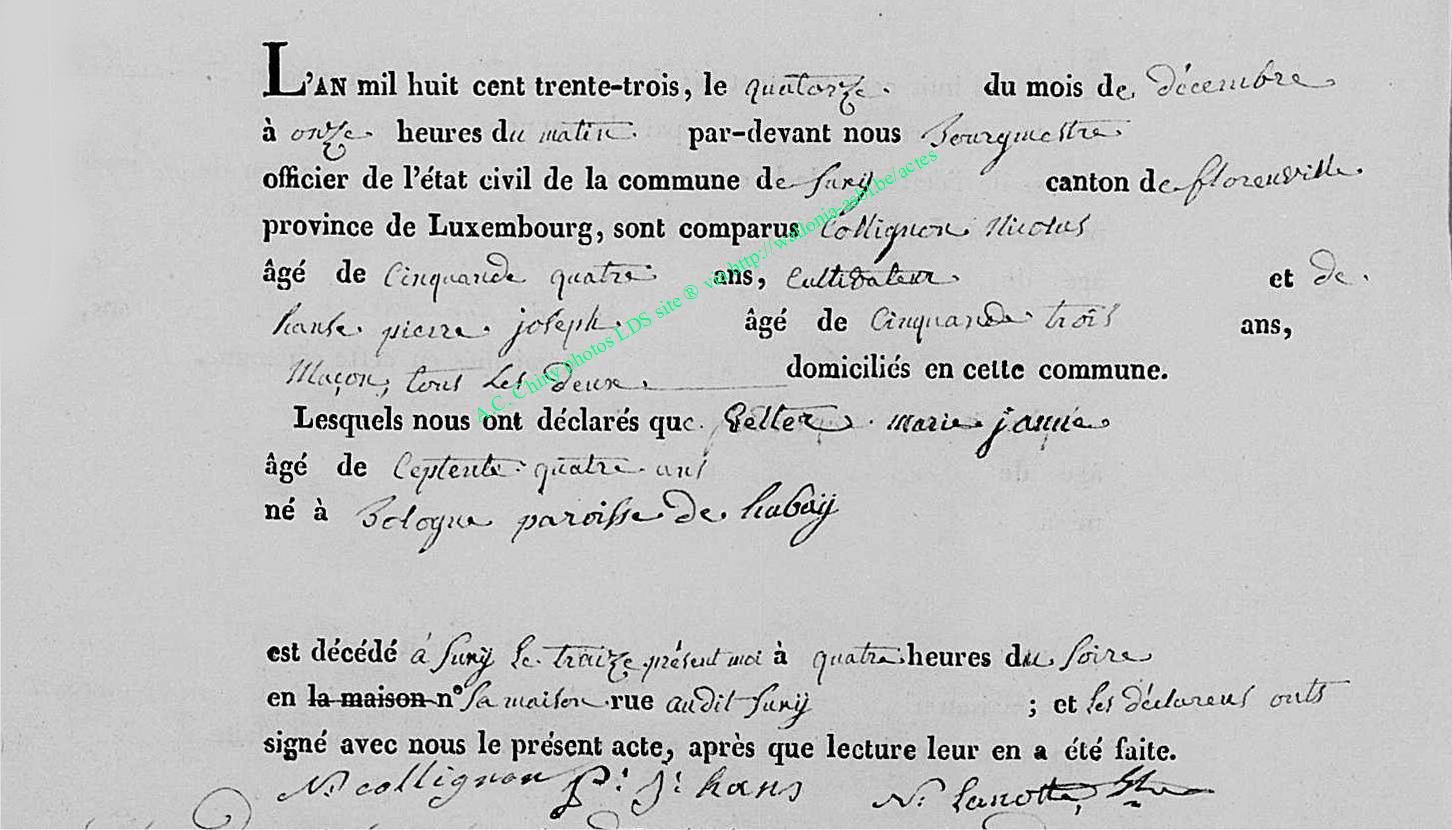 L'AN mil huit cent trente-trois, le quatorze du mois de décembre
à onze heures du matin par-devant nous Bourgmestre
officier de l'état civil de la commune de Suxÿ canton de florenville
province de Luxembourg, sont comparus Collignon Nicolas
âgé de Cinquande quatre ans, Cultivateur et de
hanse pierre joseph âgé de Cinquande trois ans,
Maçon, tous Les Deux domiciliés en cette commune.
Lesquels nous ont déclarés que marie
âgé de Ceptente quatre ans
né à Bologne paroisse de habaÿ
est décédé à Suxÿ Le traize présent moi à quatre heures du soire
en la maison n° Sa maison rue audit Suxÿ ; et les déclarens onts
signé avec nous le présent acte, après que lecture leur en a été faite.
N: collignon p: j: hans N: Lanotte
A.C. Chiny photos LDS site ® via http://wallonia-asbl.be/actes